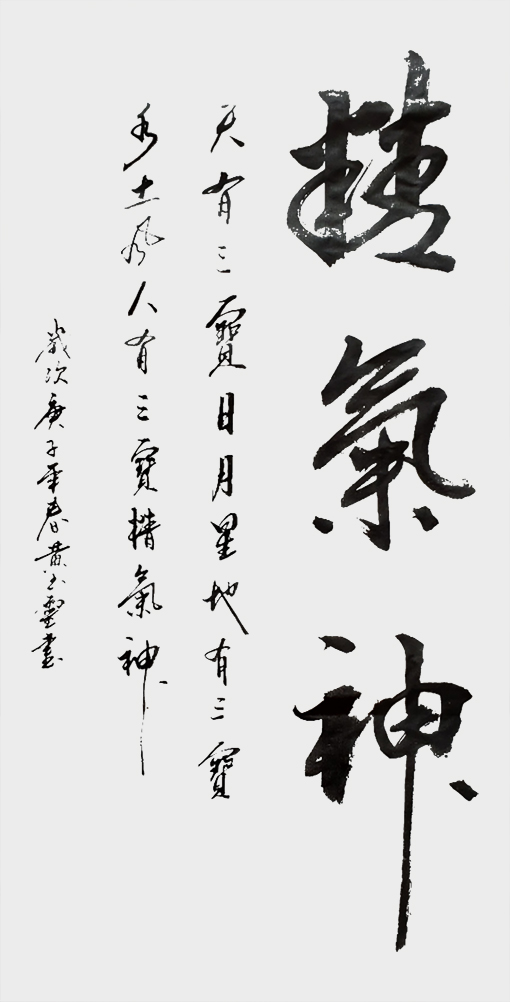 精氣神
天有三寶日月星地有三寶
水土風人有三寶精氣神
歲次庚子年春黄玉靈書